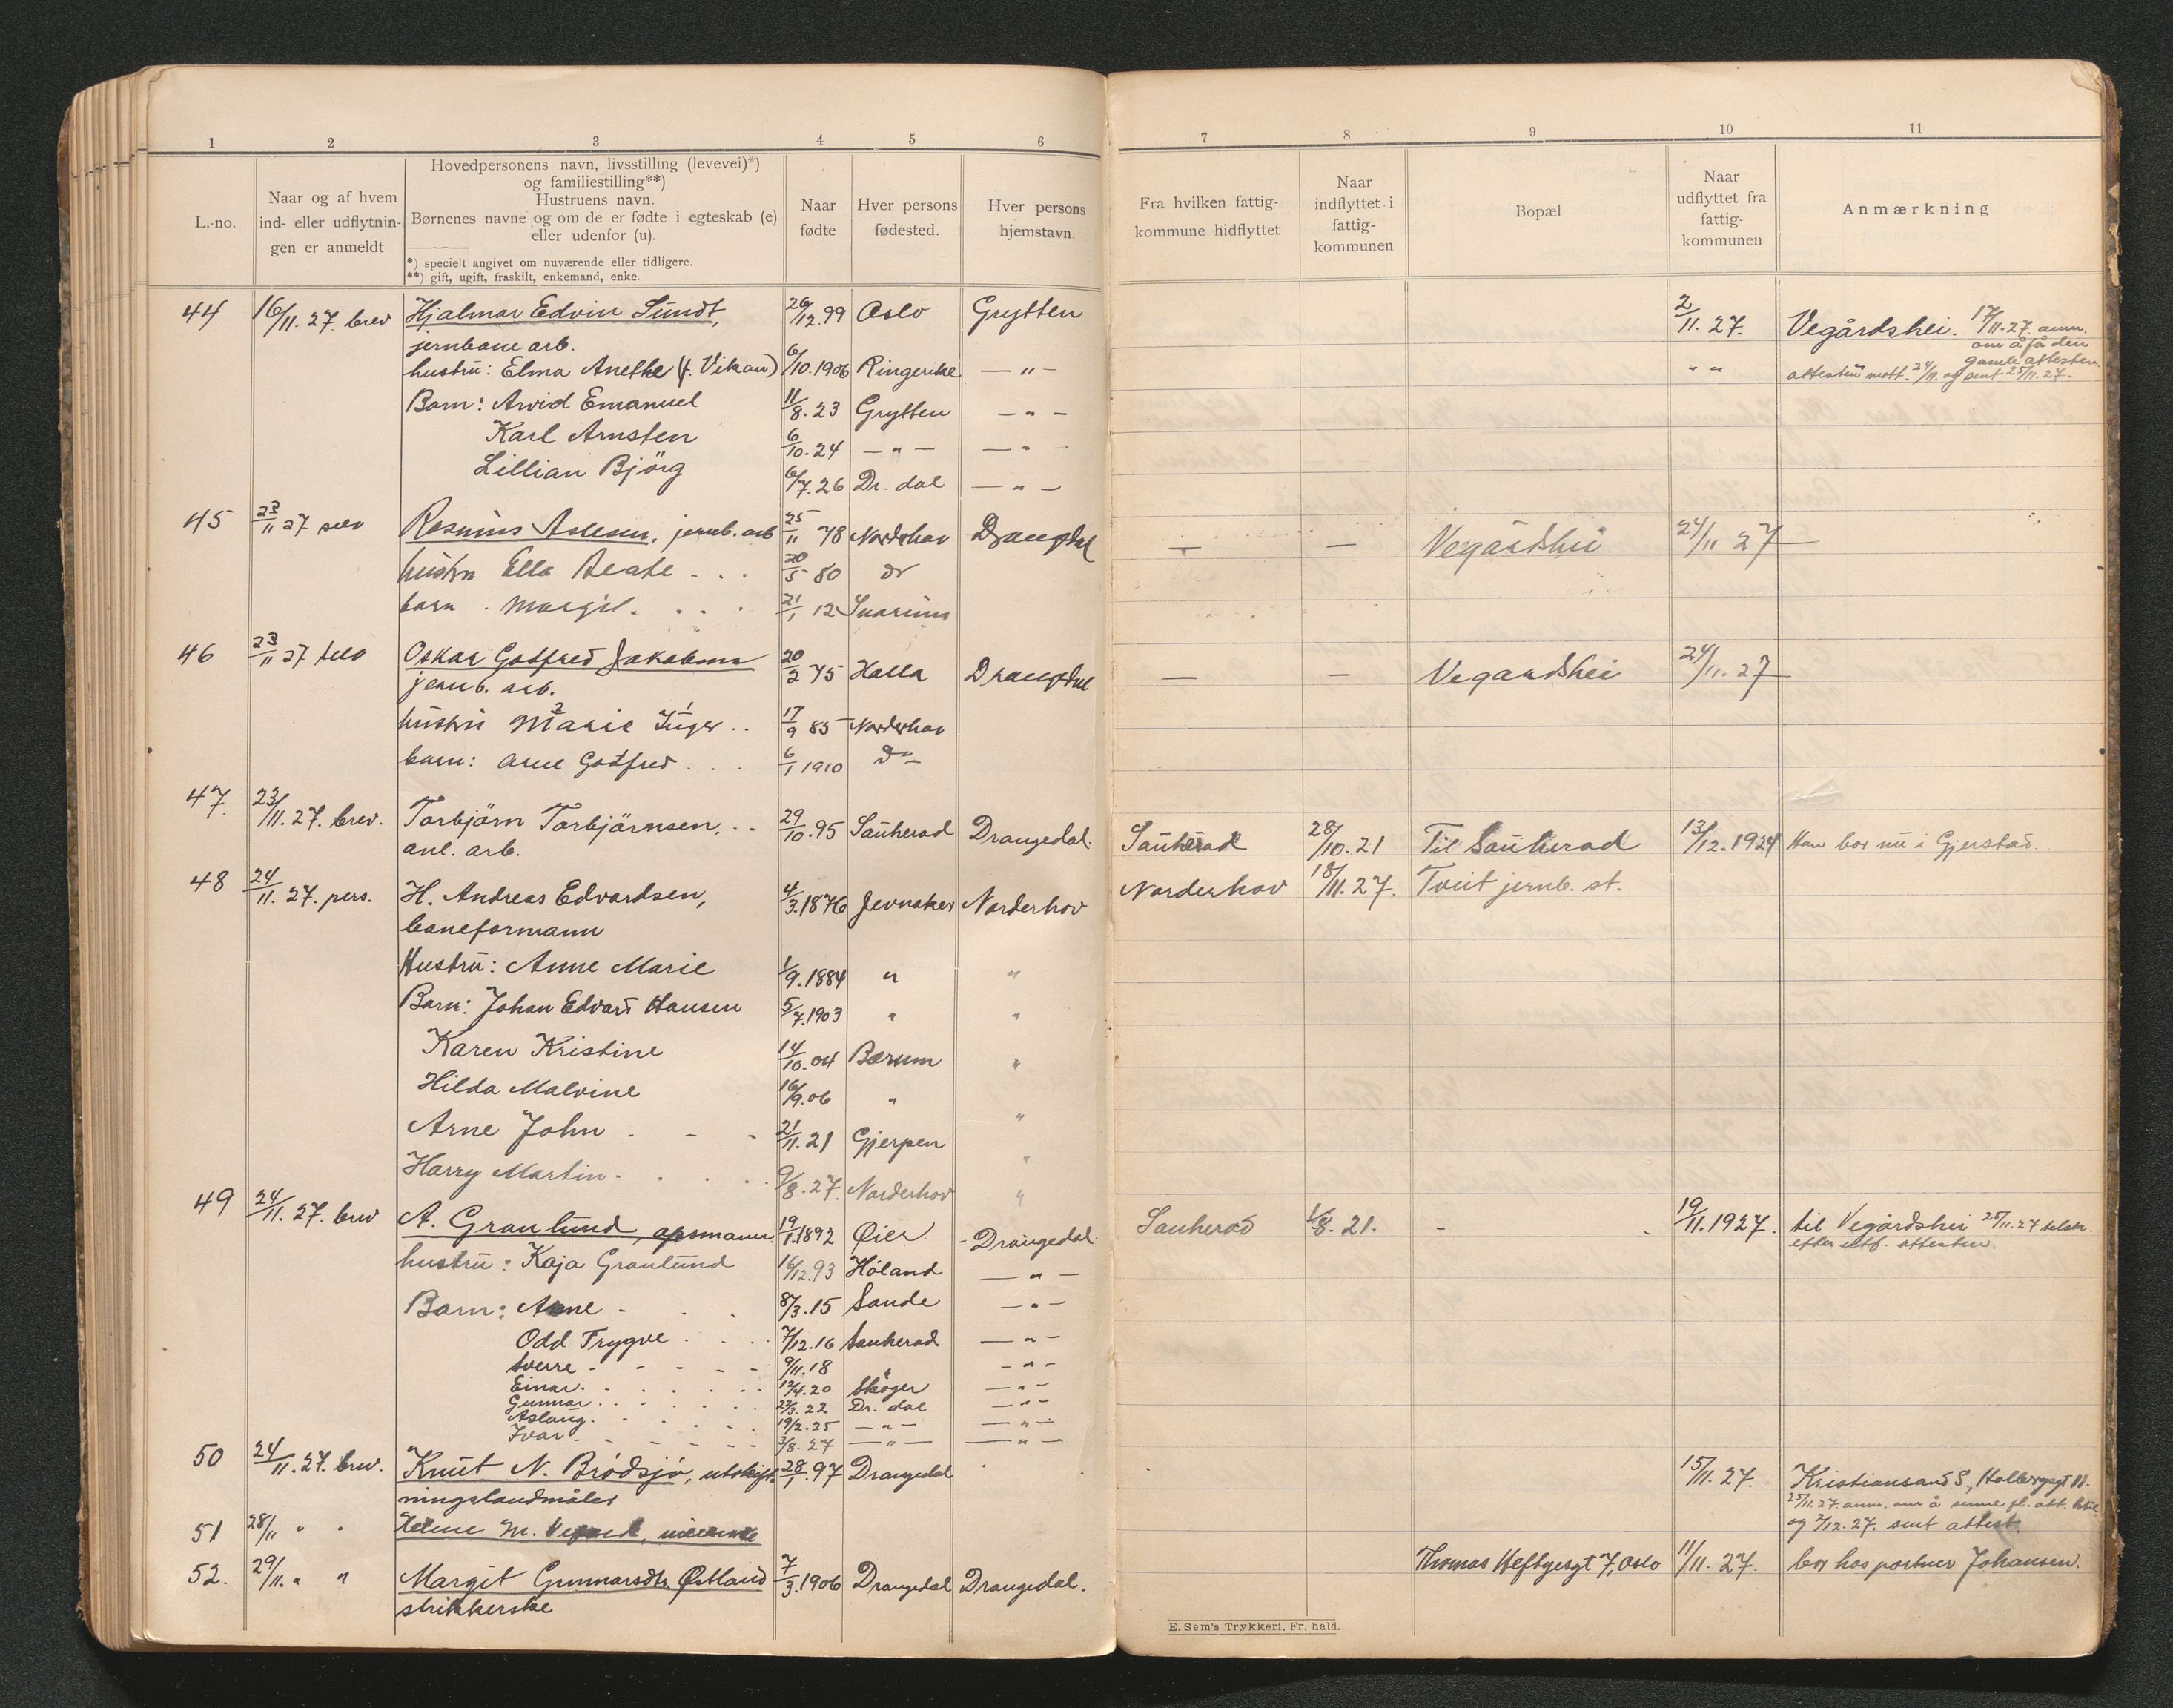 1 2 3 4 5 6 7 8 9 10 11
L.-no.
Naar og af hvem
ind- eller udflytnin-
gen er anmeldt
Hovedpersonens navn, livsstilling (levevei)*)
og familiestilling**)
Hustruens navn.
Børnenes navne og om de er fødte i egteskab (e)
eller udenfor (u).
*) specielt angivet om nuværende eller tidligere.
**) gift, ugift, fraskilt, enkemand, enke.
Naar
fødte
Hver persons
fødested.
Hver persons
hjemstavn.
Fra hvilken fattig-
kommune hidflyttet
Naar
indflyttet i
fattig-
kommunen
Bopæl
Naar
udflyttet fra
fattig-
kommunen
Anmærkning
44 16/11. 27. brev Hjalmar Edvin Sundt, 26/12.99 Oslo Grytten 2/11. 27. Vegårdshei. 17/11-27. anm.
om å få den
jernbane arb. gamle attesten
hustru: Elma Anethe (f. Vikan) 6/10.1906 Ringerike — " — " " attesten mott. 24/11. og sent 25/11. 27.
Barn: Arvid Emanuel 11/8. 23 Grytten — " —
Karl Arnsten 6/10.24 — " — — "
Lillian Bjørg 6/7.26 Dr. dal — " —
45 23/11 27 selv Rasmus Aslesen, jernb. arb 25/11 78 Norderhov Drangedal — — Vegårdshei 24/11 27 —
hustru Ella Beate . . . 20/5 80 do
barn . Margit. . . . 21/1 12
46 23/11 27 selv Oskar Gotfred Jakobsen 20/2 75 Holla Drangedal — — Vegårdshei 24/11. 27 —
jernb. arb.
hustru 2 Marie 1 Inger . . 17/9 85 Norderhov
barn: Arne Gotfred . . . 6/1 1910 do
47. 23/11. 27. brev. Torbjörn Torbjörnsen. . . 29/10.95 Sauherad Drangedal. Sauherad 28/10. 21 Til Sauherad 13/12. 1924 Han bor nu i Gjerstad.
anl. arb.
48 24/11. 27. pers. H. Andreas Edvardsen, 4/3.1876 Jevnaker Norderhov Norderhov 18/11. 27. Tveit jernb. st.
baneformann
Hustru: Anne Marie 1/9. 1884 " "
Barn: Johan Edvard Hansen 5/7.1903 " "
Karen Kristine 14/10.04 Bærum "
Hilda Malvine 16/9.06 "
Arne John . - - 21/11. 21 Gjerpen "
Harry Martin . . . . 9/8. 27. Norderhov "
49 24/11. 27. brev A. Granlund, opsmann. 19/1.1892 Øier - Drangedal. Sauherad 1/8. 21. - . 19/11. 1927. til Vegårdshei 25/11. 27
efter utf. attesten.
hustru: Kaja Granlund 16/12.93 Høland — " —
Barn: Arne - . . 8/3. 15 Sande — " —
Odd Trygve . . . 7/12. 16 Sauherad — " —
Sverre - - - - - 9/11. 18 — " —
Einar. . . . . . 12/4. 20 Skoger — " —
Gunnar . . . . . 23/3. 22 Dr. dal — " —
Aslaug. . . . . 19/2. 25 — " — — " —
Ivar - - - - - 3/8. 27 — " — — " —
50 24/11. 27. brev. Knut N. Brødsjø, utskift- 28/1. 97 Drangedal 15/11. 27. Kristiansand S., Holbergsgt 11.
ningslandmåler 25/11. 27. anm. om å
og 2/12. 27. sent attest.
51 28/11 " "
52. 29/11. " " Margit Gunnarsdtr. Østland 7/3.1906 Drangedal Drangedal. Thomas Heftyesgt 7, Oslo 11/11. 27. bor hos portner Johansen.
strikkerske
E. Sem's Trykkeri, Fr. hald.